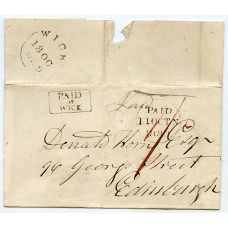 WICK
13 OC
PAID
AT
WICK
Paid
PAID
OCT
Donald Horne Esq
96 George Street
Edinburgh